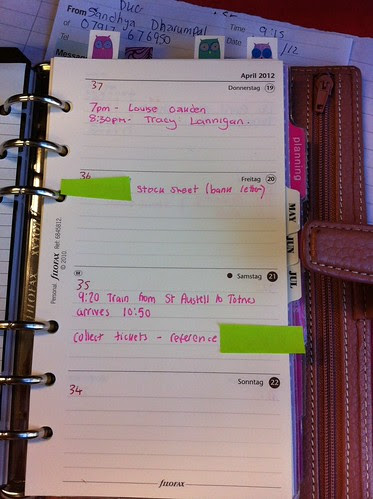 From
Sandhya Dharumpal
of
Time 9:15
Date /12
Message
April 2012
37
Donnerstag 19
7pm - Louise
8:30pm - Tracy Lannigan.
36
Freitag 20
Stock sheet (bank letter)
Samstag 21
35
9:20 Train from St Austell to Totnes
arrives 10:50
collect tickets - reference
Sonntag 22
34
FILOFAX
Personal FILOFAX Ref: 6845812
© 2010
planning
MAY
JUN
JUL